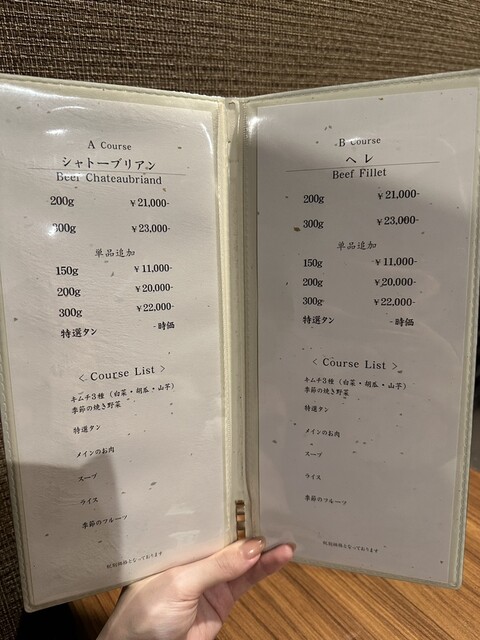 A Course
シャトーブリアン
Beef Chateaubriand
200g ￥21,000-
300g ￥23,000-
単品追加
150g ￥11,000-
200g ￥20,000-
300g ￥22,000-
特選タン -時価
< Course List >
キムチ3種（白菜・胡瓜・山芋）
季節の焼き野菜
特選タン
メインのお肉
スープ
ライス
季節のフルーツ
税別価格となっております
B Course
ヘレ
Beef Fillet
200g ￥21,000-
300g ￥23,000-
単品追加
150g ￥11,000-
200g ￥20,000-
300g ￥22,000-
特選タン -時価
< Course List >
キムチ3種（白菜・胡瓜・山芋）
季節の焼き野菜
特選タン
メインのお肉
スープ
ライス
季節のフルーツ
税別価格となっております